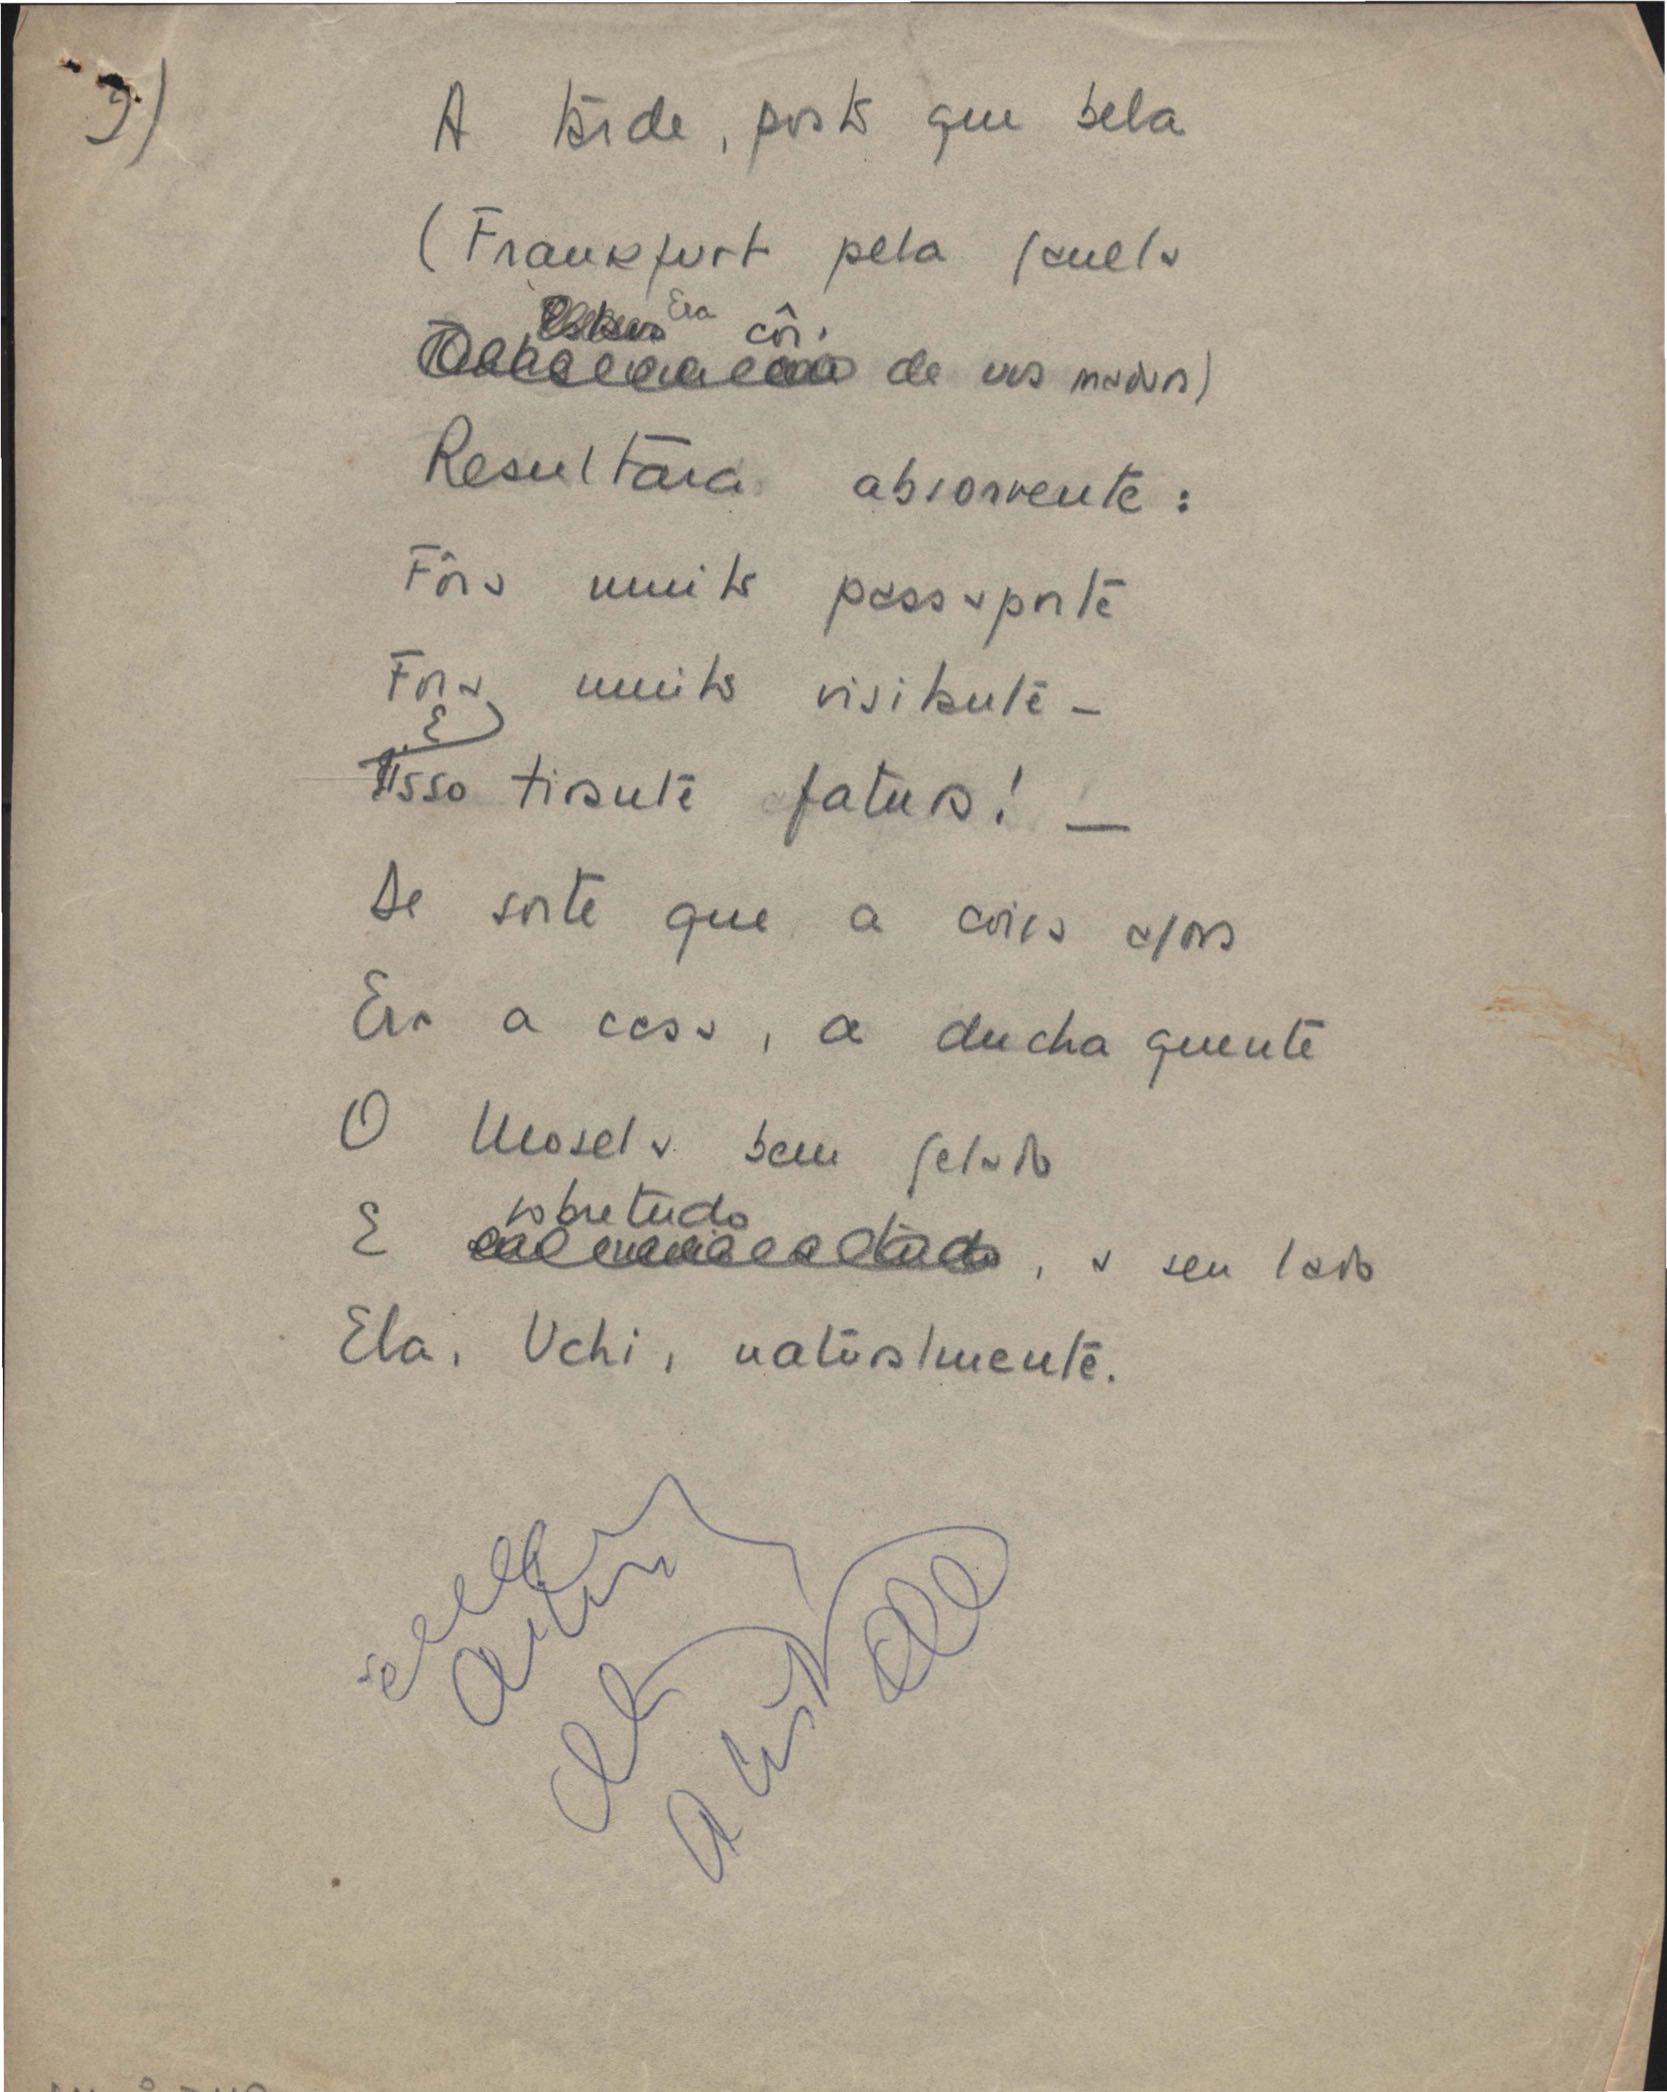 9)
A tarde, posto que bela
(Frankfurt pela janela
Era côr
de uvas maduras)
Resultara absorvente:
Fôra muito passaporte
Fora muito visitante –
E
Isso tirante faturas! —
De sorte que a coisa agora
Era a casa, a ducha quente
O Mosela bem gelado
sobretudo
E , a seu lado
Ela, Uchi, naturalmente.